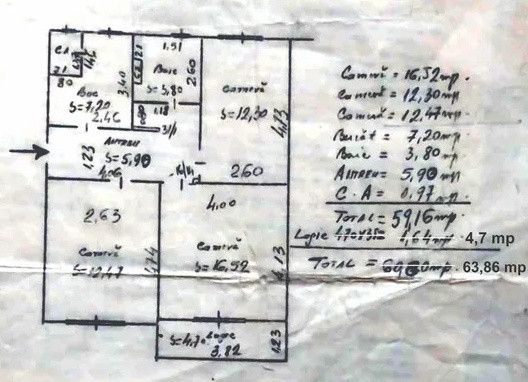 C.A
80
Buc
S=7,20
2,46
3,40
1,51
Baie
S=3,80
2,60
1,18
Cameră
S=12,30
4,73
Antreu
S=5,90
1,23
4,06
2,60
2,63
4,00
Cameră
S=12,47
4,74
Cameră
S=16,52
4,13
S=4,70 Logie
3,82
1,23
Cameră = 16,52 mp.
Cameră = 12,30 mp.
Cameră = 12,47 mp.
Bucăt = 7,20 mp.
Baie = 3,80 mp.
Antreu = 5,90 mp.
C.A = 0,97 mp.
Total = 59,16 mp.
Logie 4,7 mp
Total = 63,86 mp